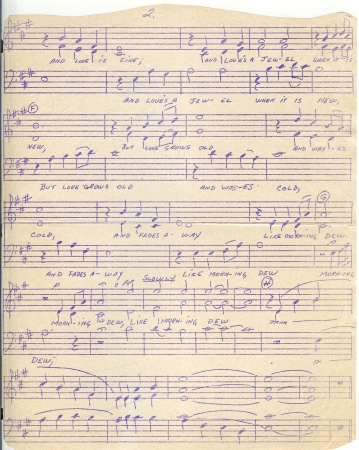 2.
AND LOVE IS FINE; AND LOVE'S A JEW-EL WHEN IT IS
AND LOVE'S A JEW-EL WHEN IT IS NEW,
F
NEW, BUT LOVE GROWS OLD AND WAX-ES
BUT LOVE GROWS OLD AND WAX-ES COLD,
G
COLD, AND FADES A-WAY LIKE MORN-ING DEW
AND FADES A-WAY LIKE MORN-ING DEW MORN-ING
SLOWLY
H
MORN-ING DEW, LIKE MORN-ING DEW
DEW;